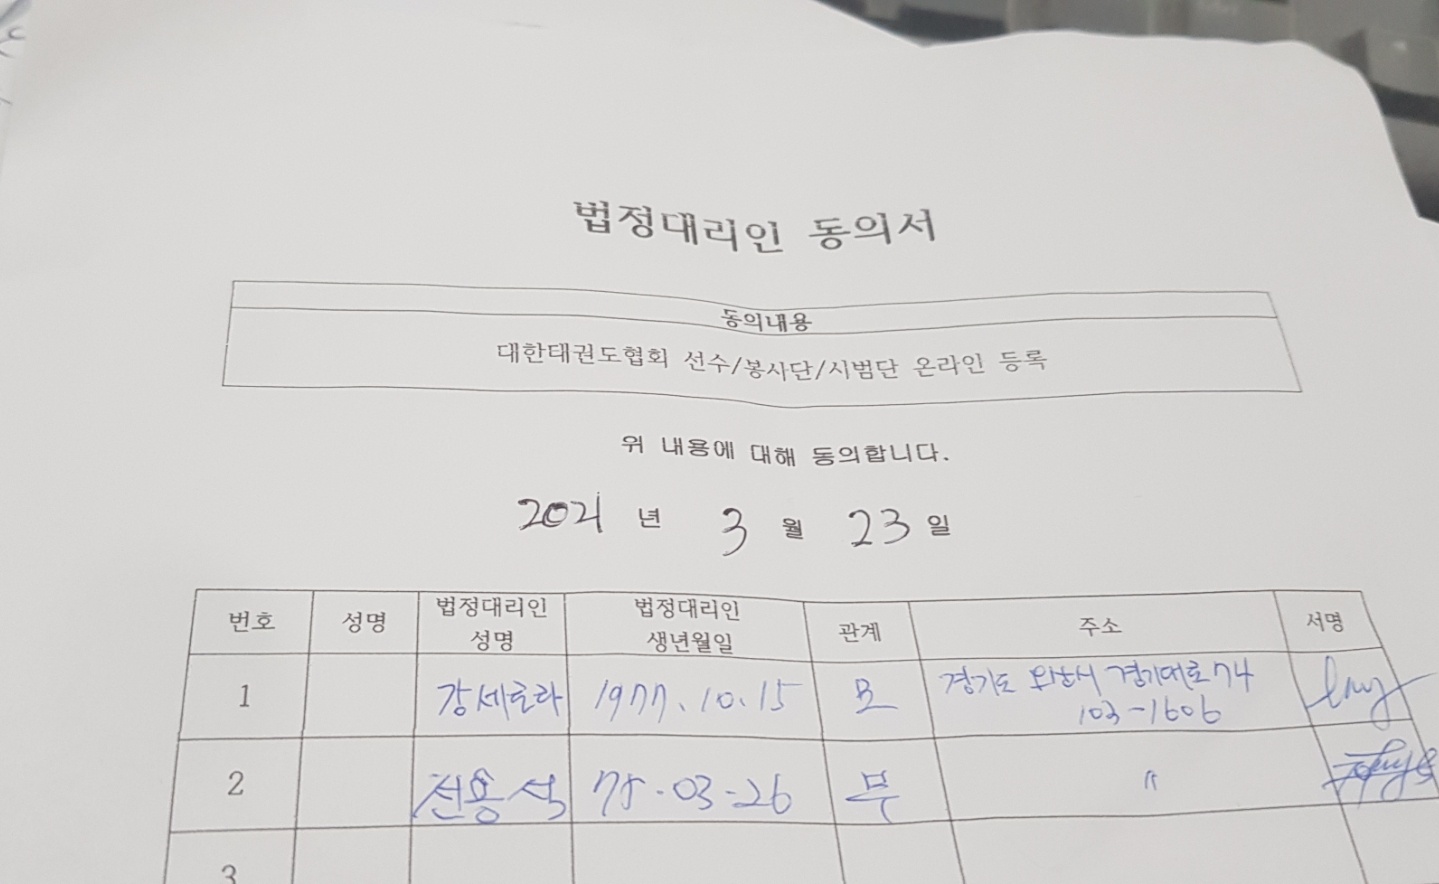 법정대리인 동의서
동의내용
대한태권도협회 선수/봉사단/시범단 온라인 등록
위 내용에 대해 동의합니다.
2021 년 3 월 23 일
번호 성명 법정대리인 성명 법정대리인 생년월일 관계 주소 서명
1 강세로라 1977. 10. 15 모 경기도 경기대로 74
103-1606
2 전용석 75-03-26 부 〃
3